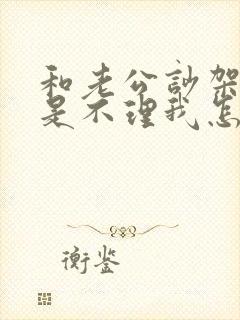 和老公討架
是不理我怎
衡鉴